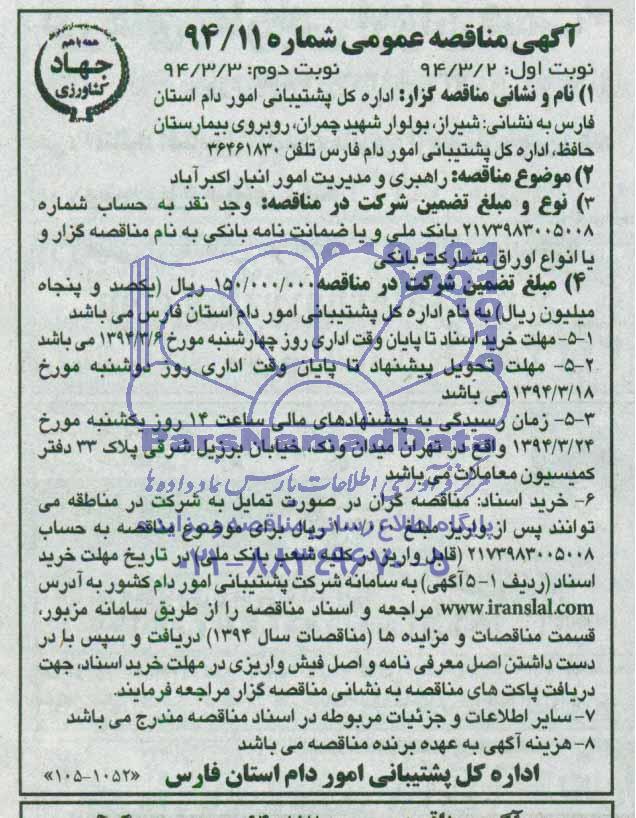 آگهی مناقصه عمومی شماره ۹۴/۱۱
همه با هم
جهاد
کشاورزی
نوبت اول: ۹۴/۳/۲ نوبت دوم: ۹۴/۳/۳
۱) نام و نشانی مناقصه گزار: اداره کل پشتیبانی امور دام استان
فارس به نشانی: شیراز، بولوار شهید چمران، روبروی بیمارستان
حافظ، اداره کل پشتیبانی امور دام فارس تلفن ۳۶۴۶۱۸۳۰
۲) موضوع مناقصه: راهبری و مدیریت امور انبار اکبرآباد
۳) نوع و مبلغ تضمین شرکت در مناقصه: وجد نقد به حساب شماره
۲۱۷۳۹۸۳۰۰۵۰۰۸ بانک ملی و یا ضمانت نامه بانکی به نام مناقصه گزار و
یا انواع اوراق مشارکت بانکی
۴) مبلغ تضمین شرکت در مناقصه ۱۵۰/۰۰۰/۰۰۰ ریال (یکصد و پنجاه
میلیون ریال) به نام اداره کل پشتیبانی امور دام استان فارس می باشد
۵-۱- مهلت خرید اسناد تا پایان وقت اداری روز چهارشنبه مورخ ۱۳۹۴/۳/۶ می باشد
۵-۲- مهلت تحویل پیشنهاد تا پایان وقت اداری روز دوشنبه مورخ
۱۳۹۴/۳/۱۸ می باشد
۵-۳- زمان رسیدگی به پیشنهادهای مالی ساعت ۱۴ روز یکشنبه مورخ
۱۳۹۴/۳/۲۴ واقع در تهران میدان ونک، خیابان برزیل شرقی پلاک ۳۳ دفتر
کمیسیون معاملات می باشد
ParsNamadData
مرکز فرآوری اطلاعات پارس نماد داده ها
۶- خرید اسناد: مناقصه گران در صورت تمایل به شرکت در مناطقه می
توانند پس از واریز مبلغ ریال برای موضوع مناقصه به حساب
پایگاه اطلاع رسانی مناقصه و مزایده
۲۱۷۳۹۸۳۰۰۵۰۰۸ (قابل واریز در کلیه شعب بانک ملی) در تاریخ مهلت خرید
۰۲۱-۸۸۳۴۹۶۷۰-۵
اسناد (ردیف ۱-۵ آگهی) به سامانه شرکت پشتیبانی امور دام کشور به آدرس
www.iranslal.com مراجعه و اسناد مناقصه را از طریق سامانه مزبور،
قسمت مناقصات و مزایده ها (مناقصات سال ۱۳۹۴) دریافت و سپس با در
دست داشتن اصل معرفی نامه و اصل فیش واریزی در مهلت خرید اسناد، جهت
دریافت پاکت های مناقصه به نشانی مناقصه گزار مراجعه فرمایند.
۷- سایر اطلاعات و جزئیات مربوطه در اسناد مناقصه مندرج می باشد
۸- هزینه آگهی به عهده برنده مناقصه می باشد
اداره کل پشتیبانی امور دام استان فارس «۱۰۵-۱۰۵۲»